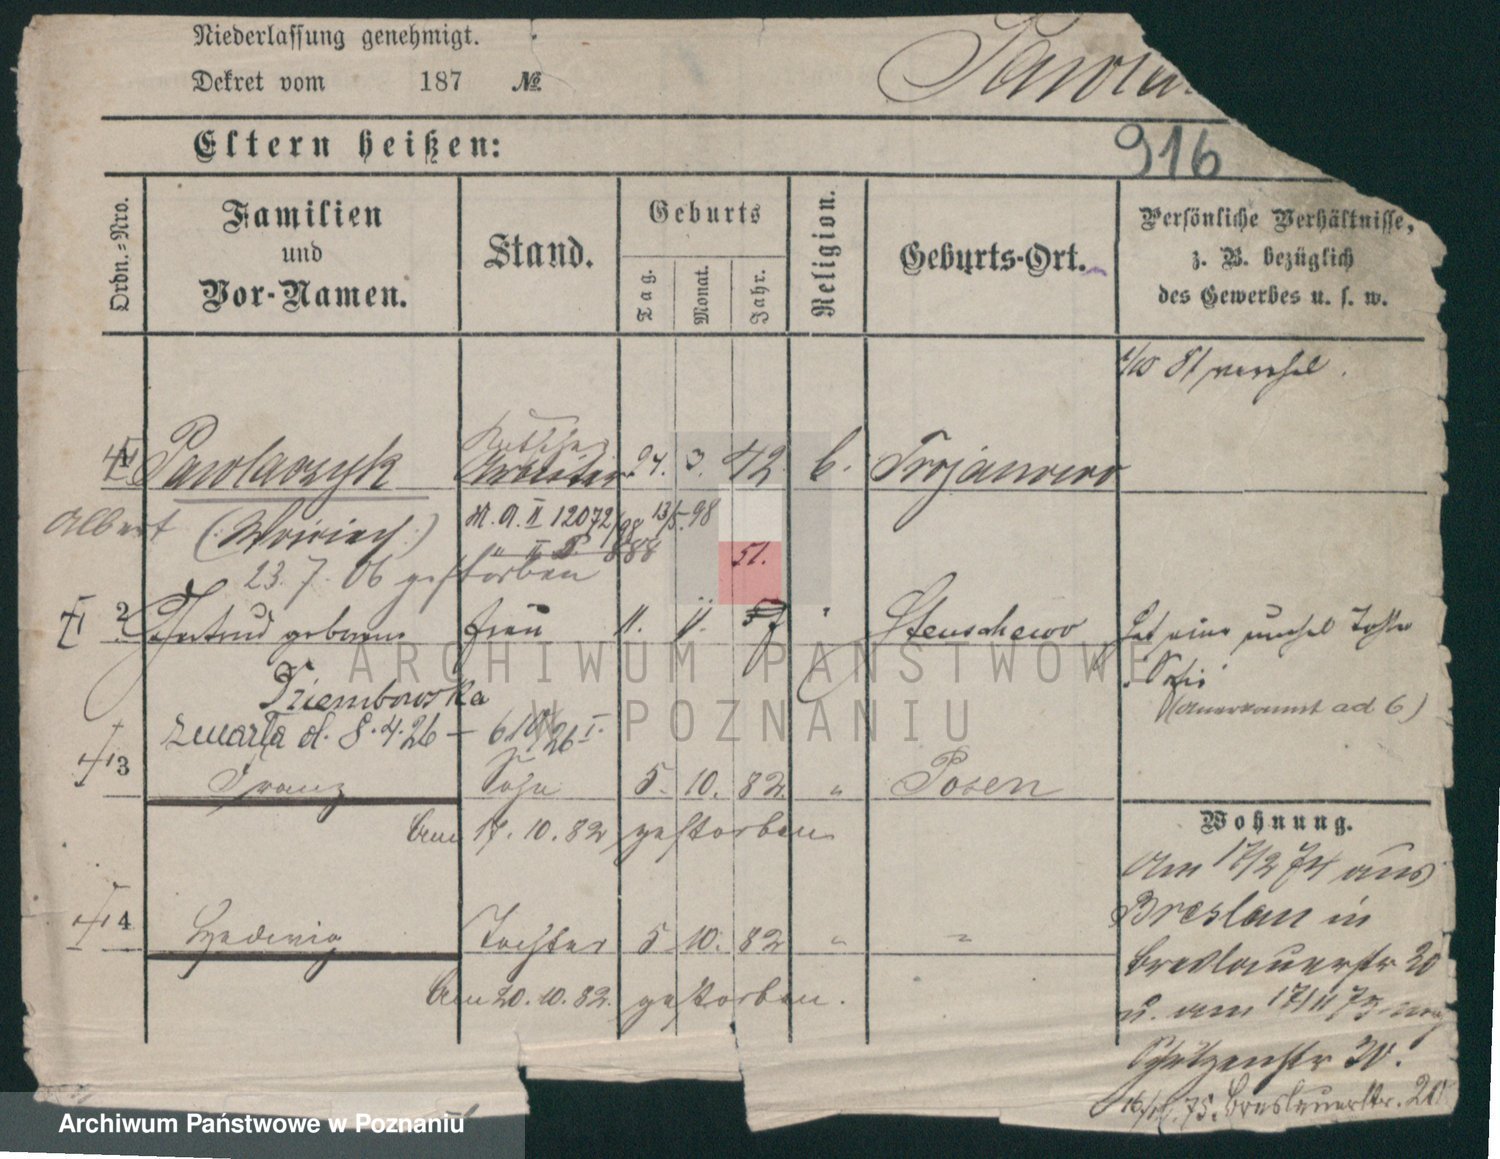 Niederlassung genehmigt.
Dekret vom 187 №
Pawola
Eltern heißen:
916
Ordn.=Nro.
Familien
und
Vor-Namen.
Stand.
Geburts
Tag.
Monat.
Jahr.
Religion.
Geburts-Ort.
Persönliche Verhältnisse,
z. B. bezüglich
des Gewerbes u. s. w.
1 Pawlaczyk Kutscher Arbeiter 24. 3. 42. C. Trojanowo
Albert
M. A. II 12072/98 13/5. 98
II 888
23. 7. 06 gestorben
51.
2 Gertrud geborene Frau 11. 11. 57 Stenschewo
Hat eine unehel Tochter
Ziembowska
(anerkannt ad 6)
zmarła d. 8.4.26
3 Franz Sohn 5. 10. 82 " Posen
Am 17. 10. 82 gestorben
Wohnung.
Am 17/2 74 aus
Breslau in
Breslauerstr 20
4 Hedwig Tochter 5 10. 82 " "
Am 20. 10. 82. gestorben.
u. am 17/11 75
Schützenstr 30.
75. Breslauerstr. 20
ARCHIWUM PAŃSTWOWE
W POZNANIU
Archiwum Państwowe w Poznaniu